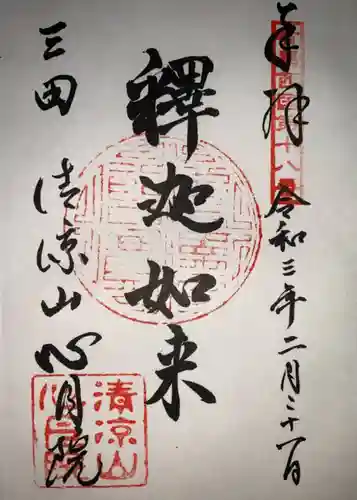 奉拝
令和三年二月二十一日
釋迦如来
三田
清涼山心月院
清涼山